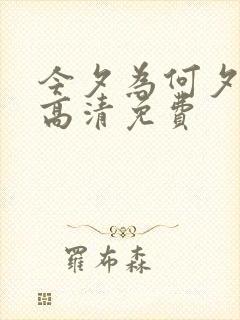 今夕為何夕
高清免費
羅布森